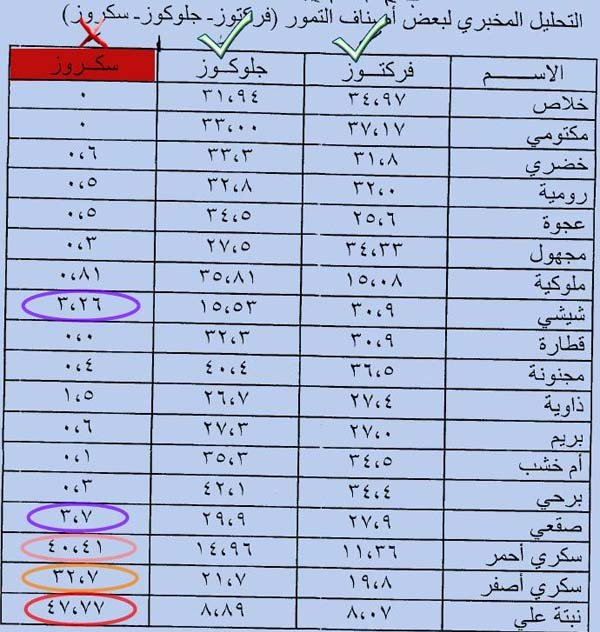 التحليل المخبري لبعض أصناف التمور (فركتوز- جلوكوز- سكروز)
الاسـم فركتـوز جلوكـوز سكـروز
خلاص ٣٤،٩٧ ٣١،٩٤ ٠
مكتومي ٣٧،١٧ ٣٣،٠٠ ٠
خضري ٣١،٨ ٣٣،٣ ٠،٦
رومية ٣٢،٠ ٣٢،٨ ٠،٥
عجوة ٢٥،٦ ٣٤،٥ ٠،٥
مجهول ٣٤،٣٣ ٢٧،٥ ٠،٣
ملوكية ١٥،٠٨ ٣٥،٨١ ٠،٨١
شيشي ٣٠،٩ ١٥،٥٣ ٣،٢٦
قطارة ٣٠،٩ ٣٢،٣ ٠،٠
مجنونة ٣٦،٥ ٤٠،٤ ٠،٤
ذاوية ٢٧،٤ ٢٦،٧ ١،٥
بريم ٢٧،٠ ٢٧،٣ ٠،٦
أم خشب ٣٤،٥ ٣٥،٣ ٠،١
برحي ٣٤،٤ ٤٢،١ ٠،٣
صقعي ٢٧،٩ ٢٩،٩ ٣،٧
سكري أحمر ١١،٣٦ ١٤،٩٦ ٤٠،٤١
سكري أصفر ١٩،٨ ٢١،٧ ٣٢،٧
نبتة علي ٨،٠٧ ٨،٨٩ ٤٧،٧٧